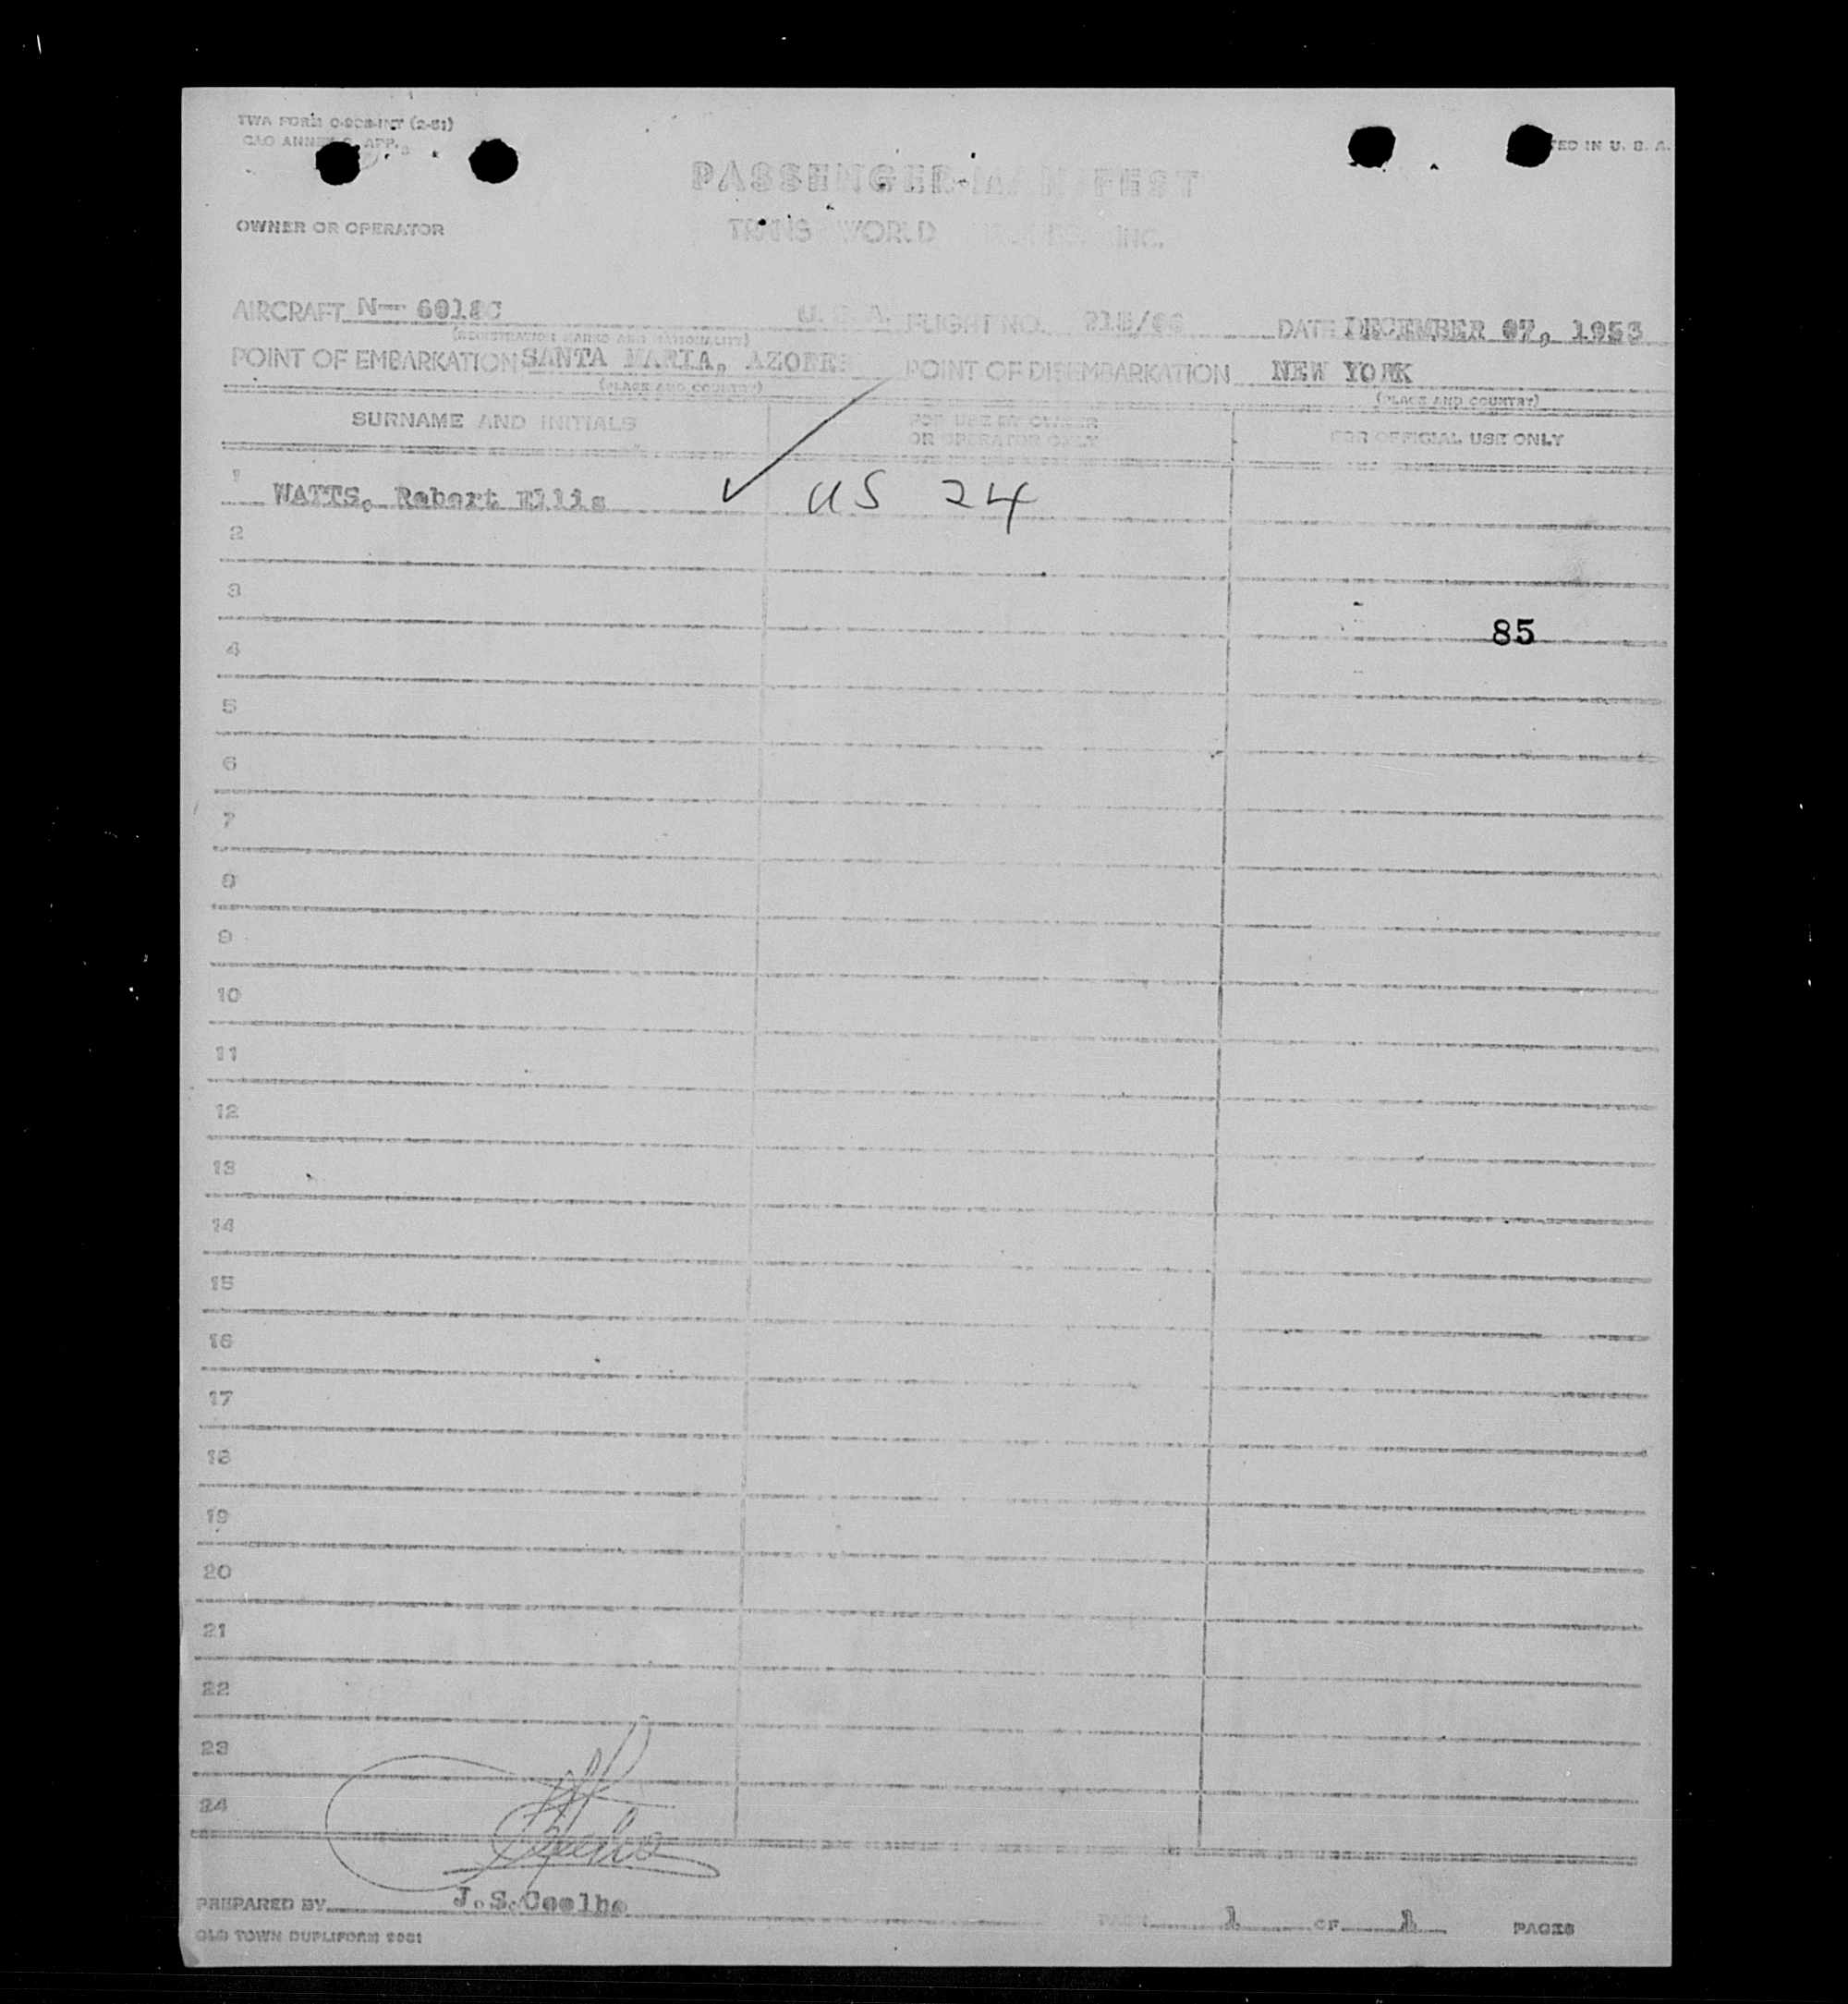 TWA FORM
OWNER OR OPERATOR
PRINTED IN U. S. A.
PASSENGER MANIFEST
TRANS WORLD INC.
AIRCRAFT N— U. S. A. FLIGHT NO. DATE DECEMBER 07, 1953
(REGISTRATION MARKS AND NATIONALITY)
POINT OF EMBARKATION SANTA MARIA, AZORES POINT OF DISEMBARKATION NEW YORK
(PLACE AND COUNTRY) (PLACE AND COUNTRY)
SURNAME AND INITIALS
FOR USE BY OWNER
OR OPERATOR ONLY
FOR OFFICIAL USE ONLY
1 WATTS, Robert Ellis ✓ US 24
2
3
85
4
5
6
7
8
9
10
11
12
13
14
15
16
17
18
19
20
21
22
23
24
PREPARED BY J.S.Coelho PAGE 1 OF 1 PAGES
OLD TOWN DUPLIFORM